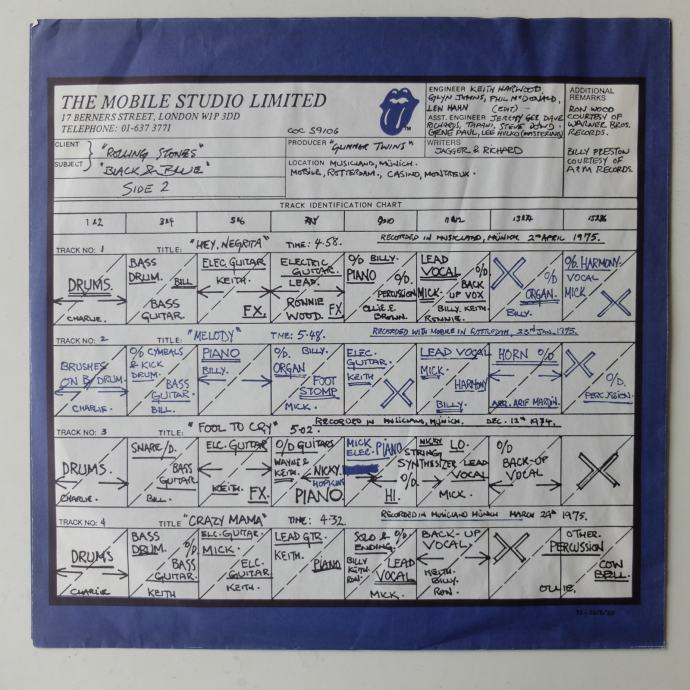 THE MOBILE STUDIO LIMITED
17 BERNERS STREET, LONDON W1P 3DD
TELEPHONE: 01-637 3771
COC 59106
CLIENT "ROLLING STONES"
SUBJECT "BLACK & BLUE"
SIDE 2
PRODUCER "GLIMMER TWINS"
LOCATION MUSICLAND, MÜNICH.
MOBILE, ROTTERDAM., CASINO, MONTREUX.
ENGINEER KEITH HARWOOD,
GLYN JOHNS, PHIL McDONALD,
LEW HAHN (EDIT) –
ASST. ENGINEER JEREMY GEE, DAVE
RICHARDS, TAPANI, STEVE DOWD
GENE PAUL, LEE HULKO (MASTERING)
WRITERS
JAGGER & RICHARD
ADDITIONAL
REMARKS
RON WOOD
COURTESY OF
WARNER BROS.
RECORDS.
BILLY PRESTON
COURTESY OF
A&M RECORDS.
TRACK IDENTIFICATION CHART
1&2 3&4 5&6 7&8 9&10 11&12 13&14 15&16
TRACK NO: 1 TITLE: "HEY, NEGRITA" TIME: 4·58. RECORDED IN MUSICLAND, MÜNICH 2ND APRIL 1975.
DRUMS.
CHARLIE.
BASS
DRUM. BILL
BASS
GUITAR
ELEC. GUITAR
KEITH.
FX.
ELECTRIC
GUITAR.
LEAD.
RONNIE
WOOD. FX
O/D BILLY.
PIANO O/D.
PERCUSSION
OLLIE E.
BROWN.
LEAD
VOCAL O/D
MICK. BACK
UP VOX
BILLY. KEITH
RONNIE.
O/D
ORGAN.
BILLY.
O/D. HARMONY.
VOCAL
MICK
TRACK NO: 2 TITLE: "MELODY" TIME: 5·48. RECORDED WITH MOBILE IN ROTTERDAM, 23RD JAN. 1975.
BRUSHES
ON B/DRUM.
CHARLIE.
O/D CYMBALS
& KICK
DRUM.
BASS
GUITAR.
BILL.
PIANO
BILLY.
O/D. BILLY.
ORGAN
FOOT
STOMP
MICK.
ELEC.
GUITAR.
KEITH
LEAD VOCAL
MICK.
HARMONY
BILLY.
HORN O/D
ARR. ARIF MARDIN.
O/D.
PERCUSSION.
TRACK NO: 3 TITLE: "FOOL TO CRY" 5·02. RECORDED IN MUSICLAND, MÜNICH. DEC. 12TH 1974.
DRUMS.
CHARLIE.
SNARE/D.
BASS
GUITAR.
BILL.
ELC. GUITAR
KEITH. FX.
O/D GUITARS
WAYNE &
KEITH. NICKY
HOPKINS
PIANO.
MICK
ELEC. PIANO
O/D.
HI.
NICKY LO.
STRING
SYNTHESIZER LEAD
VOCAL
MICK.
O/D
BACK-UP
VOCAL
TRACK NO: 4 TITLE "CRAZY MAMA" TIME: 4·32 RECORDED IN MUSICLAND MÜNICH MARCH 29TH 1975.
DRUMS
CHARLIE
BASS
DRUM. O/D
BASS
GUITAR.
KEITH
ELC. GUITAR.
MICK.
ELC.
GUITAR
KEITH.
LEAD GTR.
KEITH.
PIANO
SOLO & O/D
ENDING.
BILLY
KEITH. LEAD
RON. VOCAL
MICK.
BACK-UP
VOCAL.
KEITH.
BILLY.
RON.
OTHER.
PERCUSSION
COW
BELL.
OLLIE.